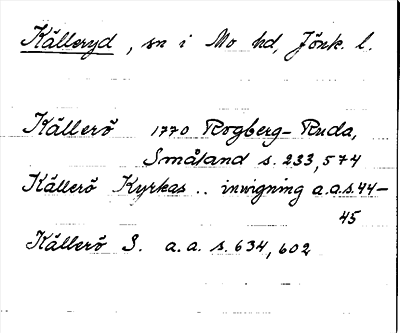 Källeryd, sn i Mo hd, Jönk. l.
Källerö 1770 Rogberg-Ruda,
Småland s. 233, 574
Källerö Kyrkas .. invigning a.a.s. 44-
45
Källerö S. a.a. s. 634, 602